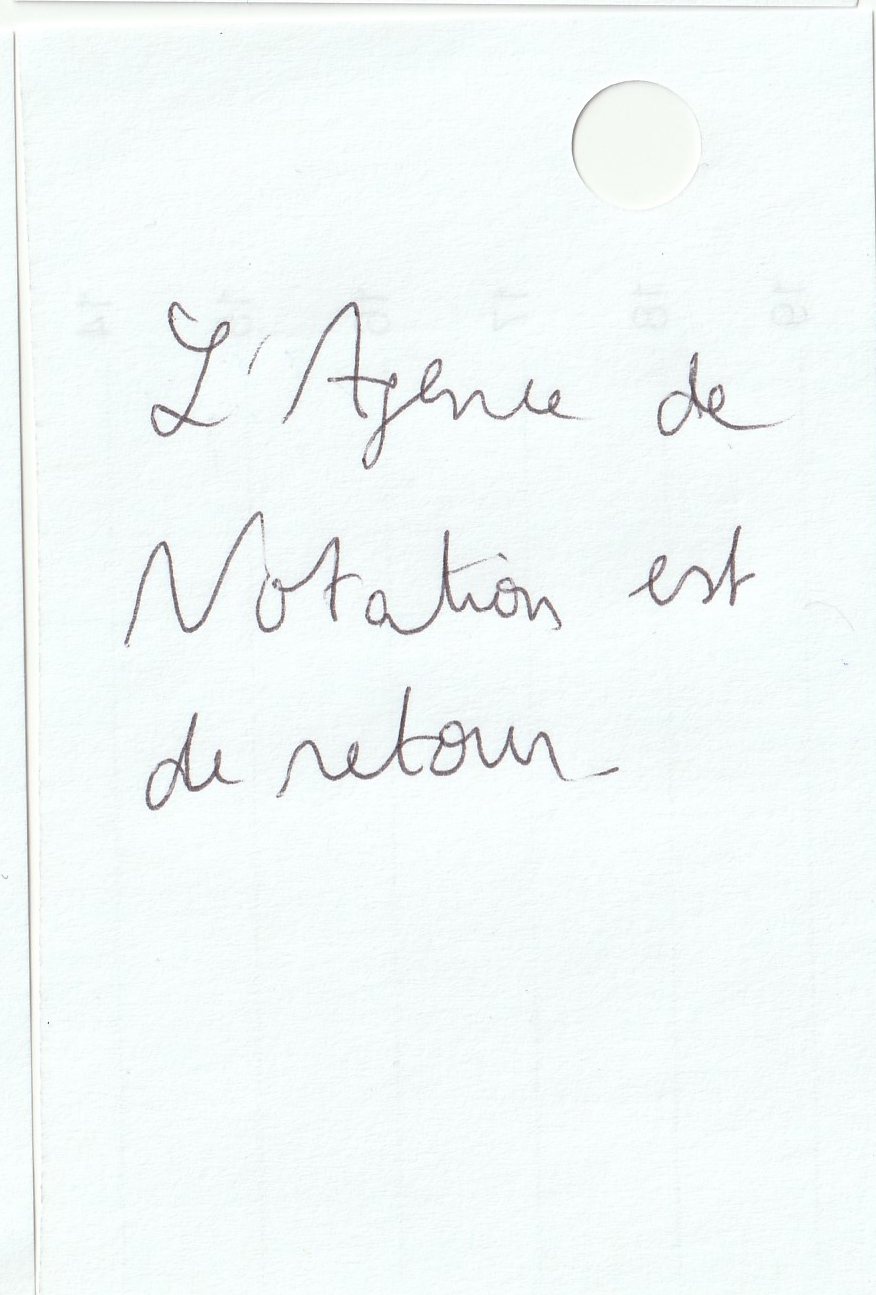 L'Agence de
Notation est
de retour